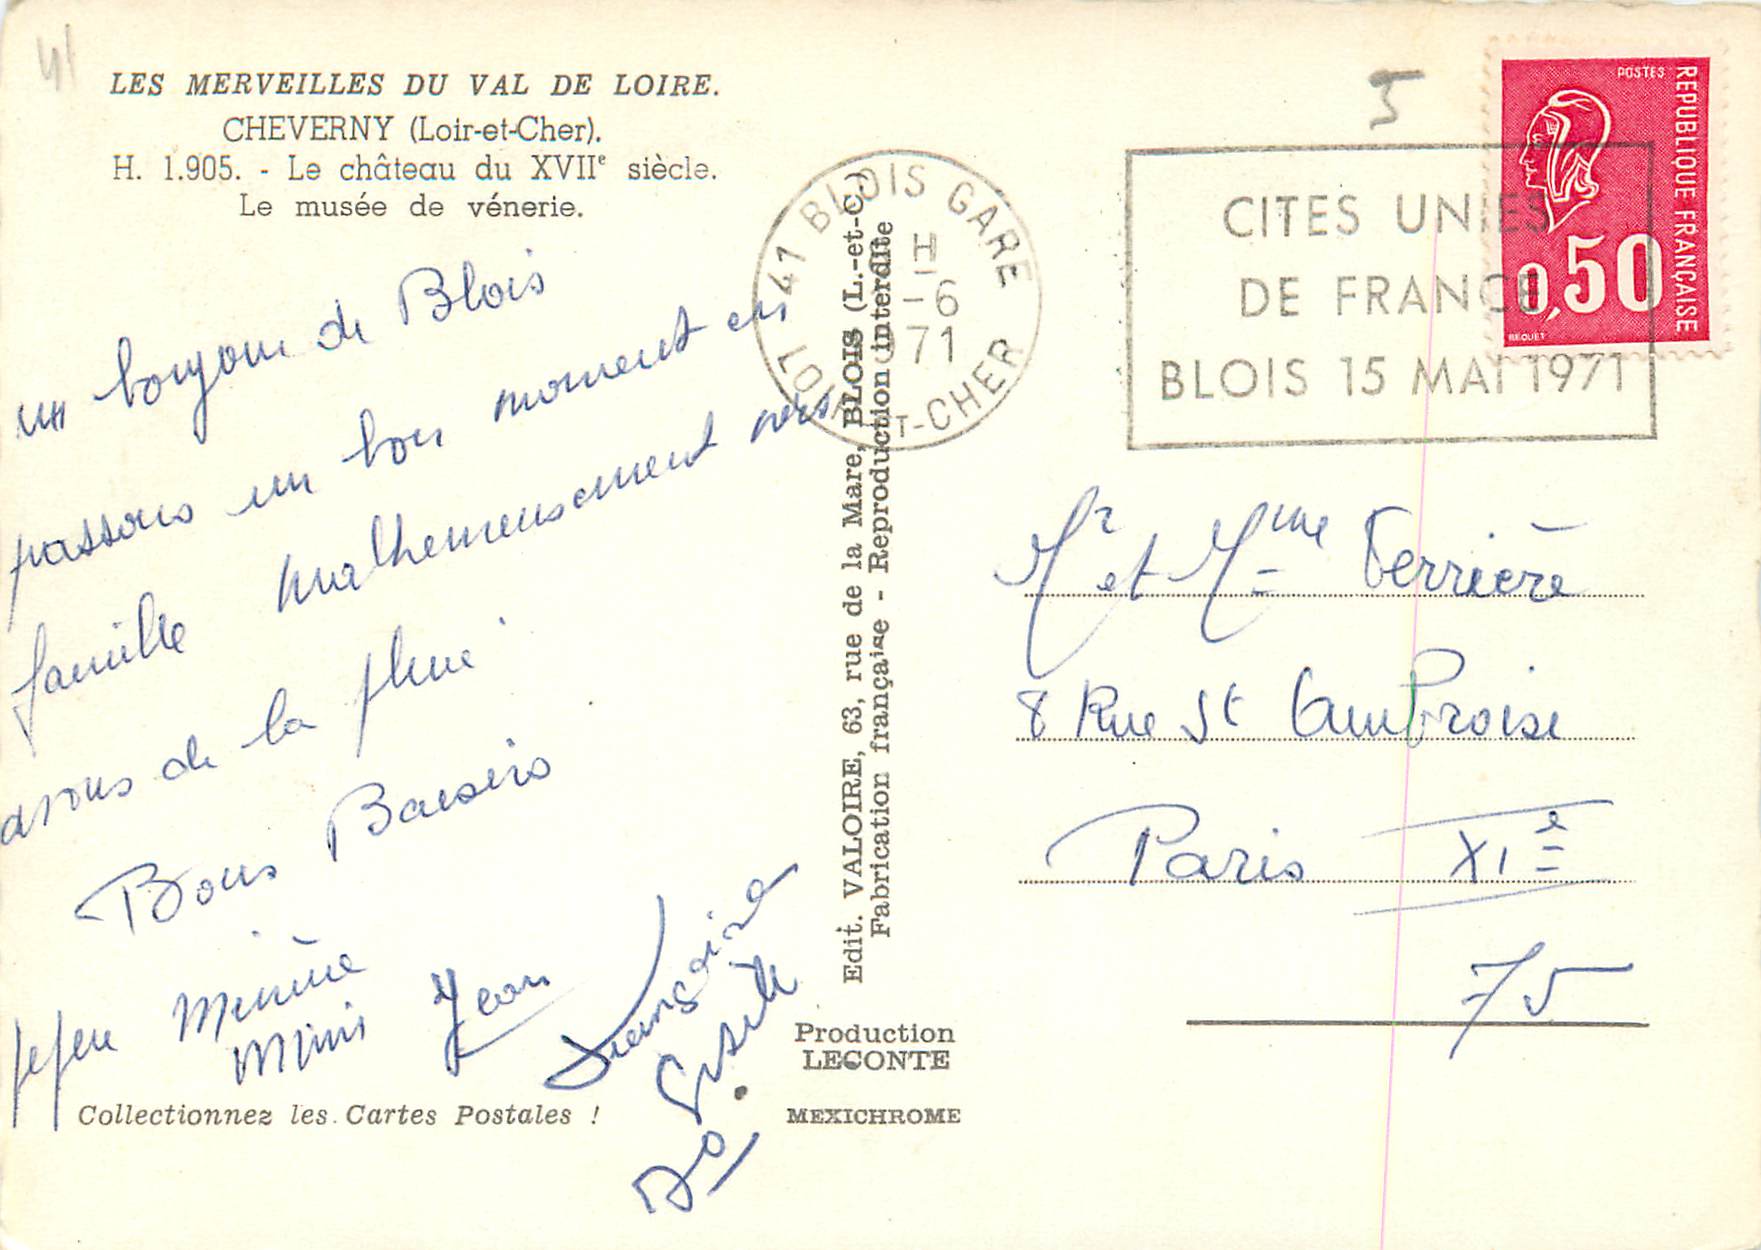 41
LES MERVEILLES DU VAL DE LOIRE.
CHEVERNY (Loir-et-Cher).
H. 1.905. - Le château du XVIIe siècle.
Le musée de vénerie.
un bonjour de Blois
passons un bon moment en
famille malheureusement nous
avons de la pluie
Bons Baisers
pepere Minine
Mimi Jean
Françoise
Gisèle
Edit. VALOIRE, 63, rue de la Mare, BLOIS (L.-et-C.)
Fabrication française - Reproduction interdite
Production
LECONTE
MEXICHROME
Collectionnez les Cartes Postales !
41 BLOIS GARE
H
-6
1971
LOIR-ET-CHER
5
CITES UNIES
DE FRANCE
BLOIS 15 MAI 1971
POSTES
REPUBLIQUE FRANÇAISE
0,50
BEQUET
Mr et Mme Ferrière
8 Rue St Ambroise
Paris XIe
75